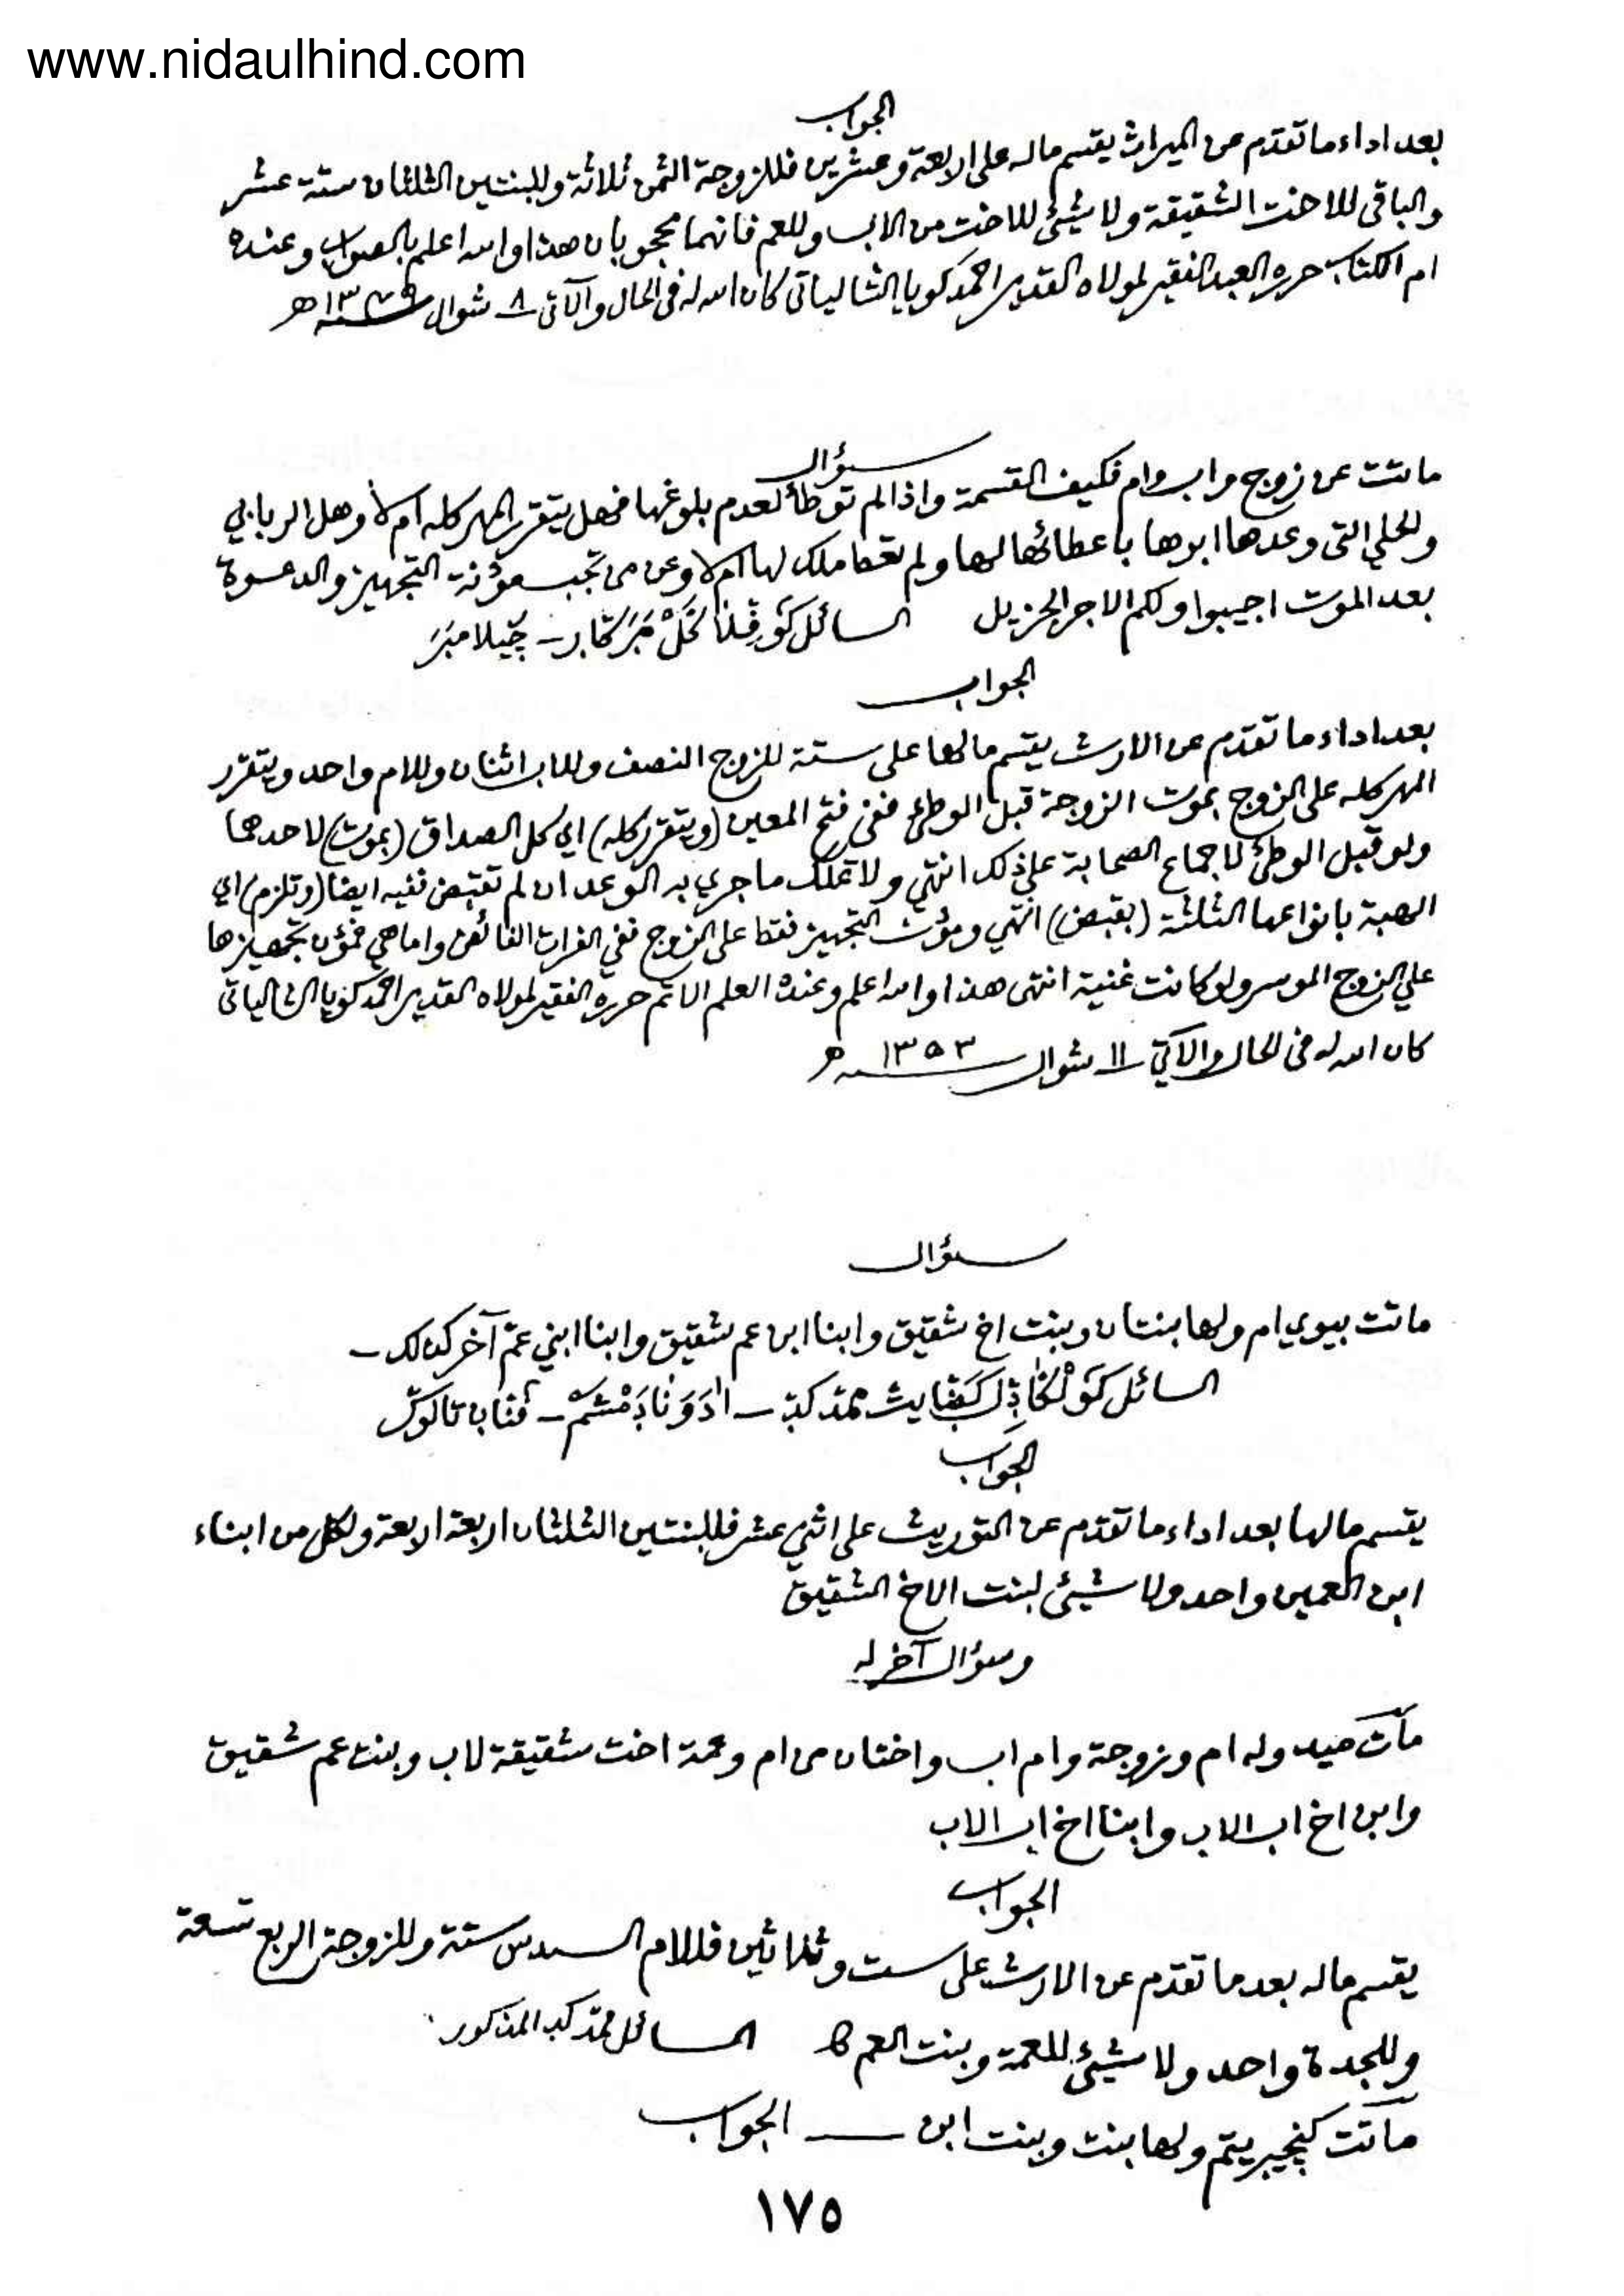 www.nidaulhind.com
الجواب
بعد اداء ما تقدم عن الميراث يقسم ماله على اربعة وعشرين فللزوجة الثمن ثلاثة وللبنتين الثلثان ستة عشر
والباقي للاخت الشقيقة ولا شيئ للاخت من الاب وللعم فانهما محجوبان هذا والله اعلم بالصواب وعنده
ام الكتاب حرره العبد الفقير لمولاه القدير احمد كويا الشالياتي كان الله له في الحال والآتي ٨ شوال ١٣٧٩ھ
سؤال
ماتت عن زوج واب وام فكيف القسمة واذا لم توطأ لعدم بلوغها فهل يتقرر المهر كله ام لا وهل الربابي
والحلي التي وعدها ابوها باعطائها لها ولم تعط ملك لها ام لا وعن من تجب مؤنة التجهيز والدعوة
بعد الموت اجيبوا ولكم الاجر الجزيل السائل
الجواب
بعد اداء ما تقدم عن الارث يقسم مالها على ستة للزوج النصف وللاب اثنان وللام واحد ويتقرر
المهر كله على الزوج بموت الزوجة قبل الوطئ ففي فتح المعين (ويتقرر كله) اي كل الصداق (بموت) لاحدهما
ولو قبل الوطئ لاجماع الصحابة على ذلك انتهي ولا تملك ما جري به التوعد ان لم تقبض ففيه ايضا (وتلزم) اي
الهبة بانواعها الثلثة (بقبض) انتهي ومؤنة التجهيز فقط على الزوج ففي الفرات الفائض واما هي فمؤن تجهيزها
علي الزوج الموسر ولو كانت غنية انتهى هذا والله اعلم وعنده العلم الاتم حرره الفقير لمولاه القدير احمد كويا الشالياتي
كان الله له في الحال والآتي ١١ شوال ١٣٥٣ھ
سؤال
ماتت بيوي ام ولها بنتان وبنت اخ شقيق وابنا ابن عم شقيق وابنا ابني عم آخر كذلك
السائل
الجواب
يقسم مالها بعد اداء ما تقدم عن التوريث على اثني عشر فللبنتين الثلثان اربعة اربعة ولكل من ابناء
ابن العمين واحد ولا شيئ لبنت الاخ الشقيق
وسؤال آخر له
مات صيد وله ام وزوجة وام اب واختان من ام وعمة اخت شقيقة لاب وبنت عم شقيق
وابن اخ اب الاب وابنا اخ اب الاب
الجواب
يقسم ماله بعد ما تقدم عن الارث على ست وثلاثين فللام السدس ستة وللزوجة الربع تسعة
وللجدة واحد ولا شيئ للعمة وبنت العم السائل محمد كبد المذكور
ماتت ولها بنت وبنت ابن — الجواب
١٧٥